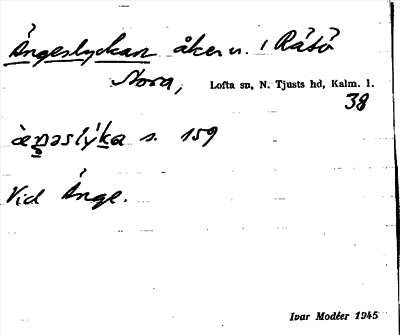 Ängeslyckan åker n. i Råsö
Stora, Lofta sn, N. Tjusts hd, Kalm. l.
38
s. 159
Vid Änge.
Ivar Modéer 1945